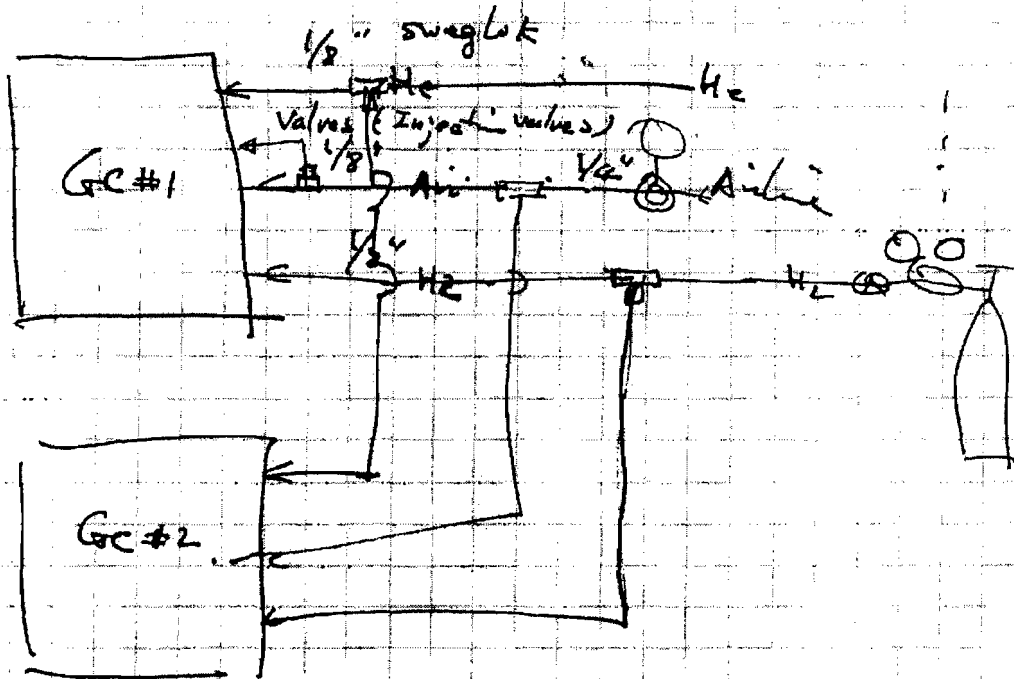 1/8 " swaglok
He He
Valves (Injection valves)
1/8" 1/4"
GC #1 Air Airline
1/8"
H2 H2
GC #2